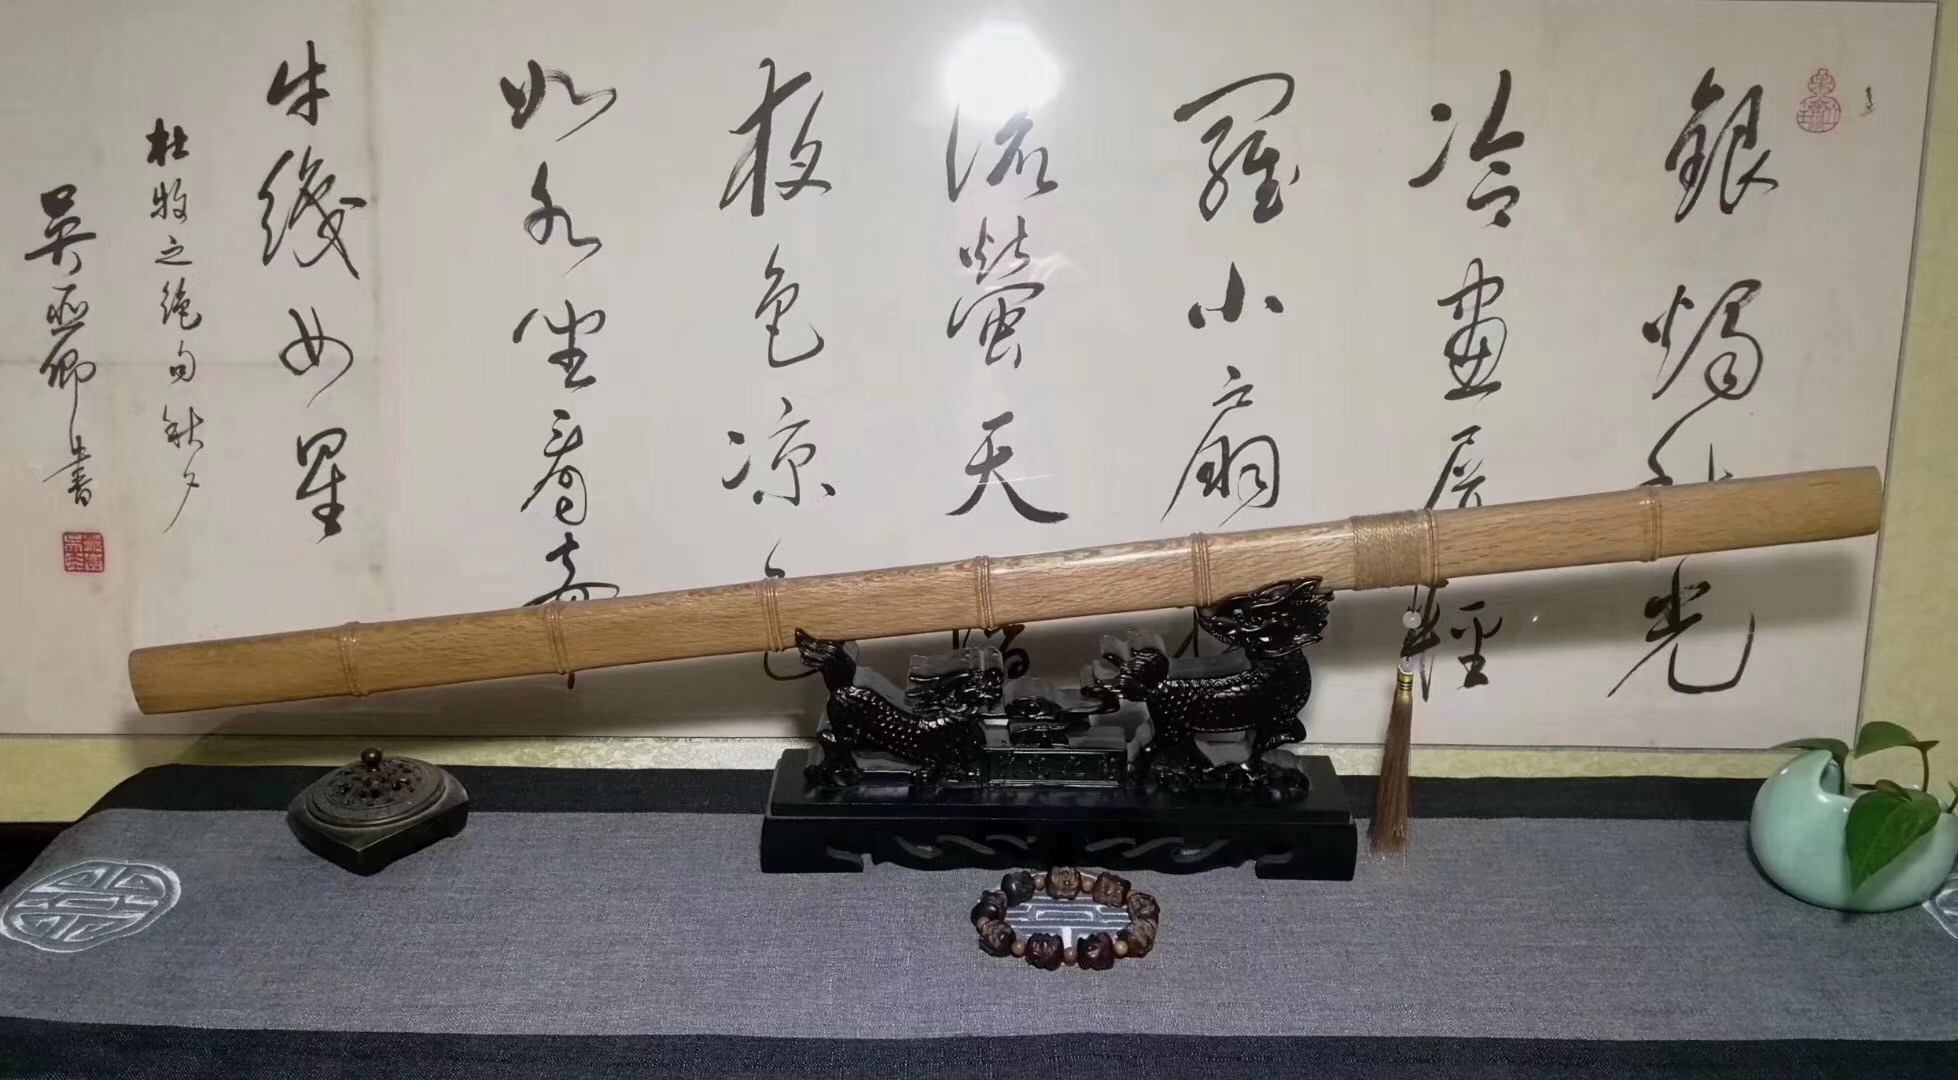 銀燭秋光
冷畫屏輕
羅小扇
流螢天階
夜色凉
如水坐看牽
牛織女星
杜牧之絕句秋夕
吳亞卿書